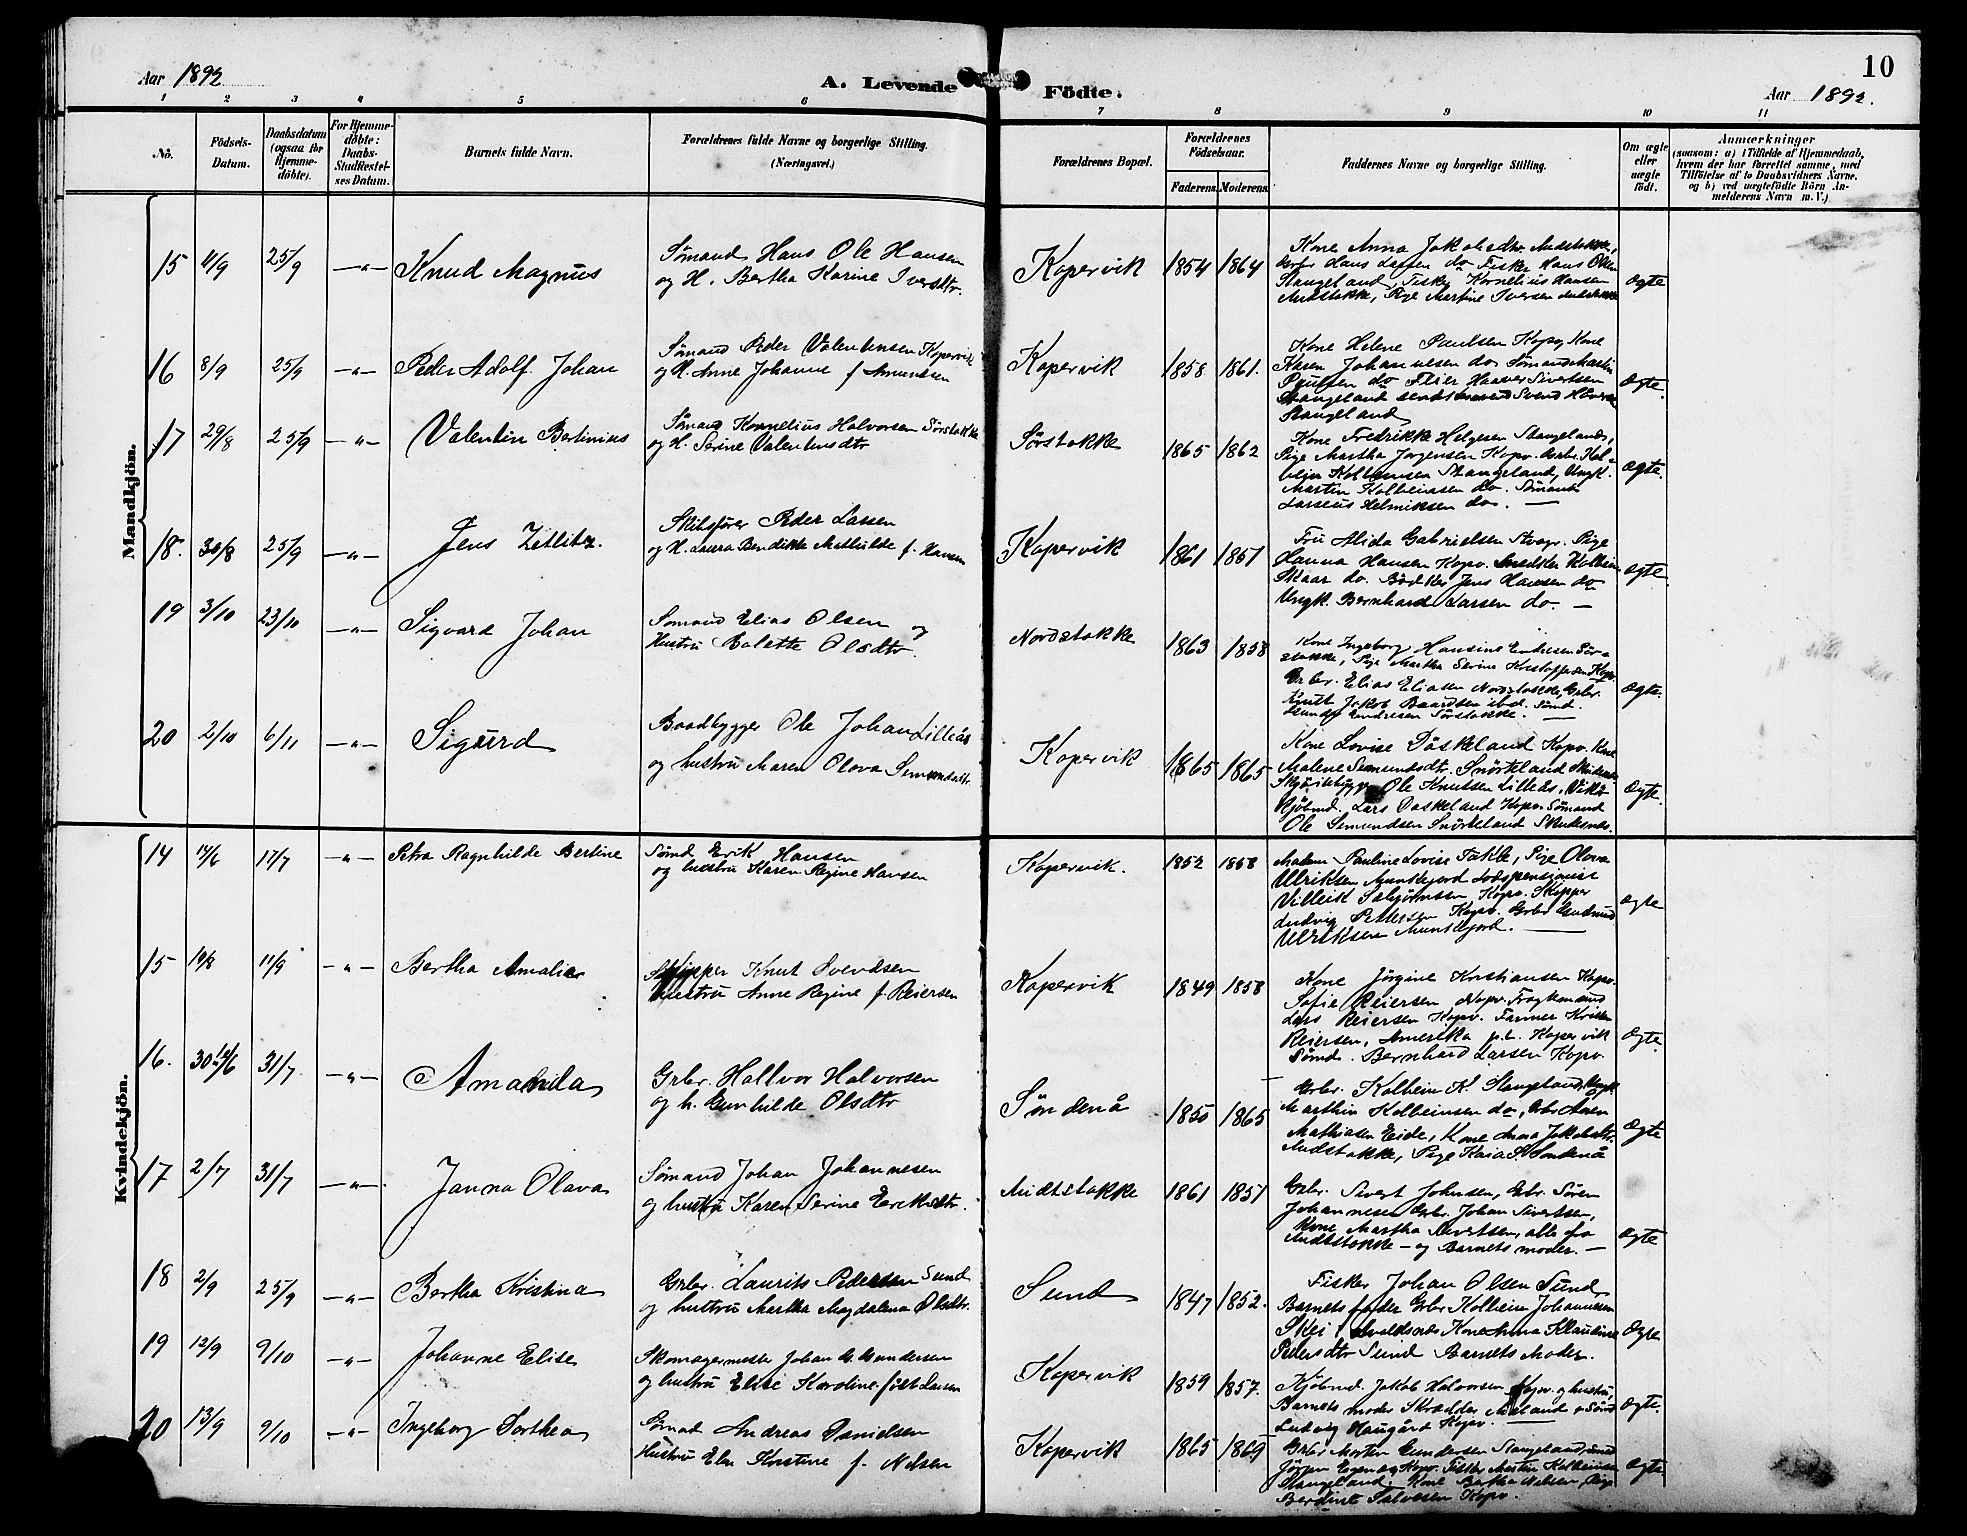 Aar 1892
A. Levende Födte.
10
Aar 1892.
1 2 3 4 5 6 7 8 9 10 11
No.
Födsels-Datum.
Daabsdatum (ogsaa for Hjemme-döbte).
For Hjemme-döbte: Daabs-Stadfæstel-ses Datum.
Barnets fulde Navn.
Forældrenes fulde Navne og borgerlige Stilling.
(Næringsvei.)
Forældrenes Bopæl.
Forældrenes Födselsaar.
Faderens. Moderens.
Faddernes Navne og borgerlige Stilling.
Om ægte eller uægte födt.
Anmærkninger
(saasom: a) i Tilfælde af Hjemmedaab,
hvem der har forrettet samme, med
Tilföielse af to Daabsvidners Navne,
og b) ved uægtefödte Börn An-
melderens Navn m. V.)
Mandkjön.
15 11/9 25/9 —"— Knud Magnus
Sømand Hans Ole Hansen
og H. Bertha Karine Iversdtr.
Kopervik 1854 1864
Kone Anna Jakobsdtr. Midstokke,
Hans Larsen do Fisker Hans Olsen
Stangeland, Fisker Kornelius Hansen
Midstokke, Pige Martine Iversen Midstokke
ægte
16 8/9 25/9 —"— Peder Adolf Johan
Sømand Peder Valentinsen Kopervik
og H. Anne Johanne f Amundsen
Kopervik 1858 1861.
Kone Helene Paulsen Kopv, Kone
Karen Johannesen do Sømand Martin
Paulsen do Haaver Sivertsen
Stangeland
Stangeland
Ægte.
17 29/8 25/9 —"— Valentin Bertinius
Sømand Kornelius Halvorsen Sørstokke
og H. Serine Valentinsdtr
Sørstokke 1865 1862
Kone Fredrikke Helgesen Stangeland,
Pige Martha Jørgensen Kopv. Grbr. Kol-
bein Kolbeinsen Stangeland, Ungk.
Martin Kolbeinsen do. Sømand
Larseus Helmiksen do. —
Ægte.
18. 30/8 25/9 —"— Jens Zetlitz.
Skibsfører Peder Lassen
og H. Laura Bendikte Mathilde f. Hansen
Kopervik 1861 1851
Fru Alida Gabrielsen Pige
Hanna Hansen Kopv. Snedker Kolbein
Skaar do. Bödker Jens Hansen do
Ungk. Bernhard Larsen do. —
Ægte
19 3/10 23/10 —"— Sigvard Johan
Sømand Elias Olsen og
Hustru Bolette Olsdtr.
Nordstokke 1863 1858
Kone Ingeborg Hansine Endresen Sør-
stokke, Pige Martha Serine Kristoffersen Kopv.
Grbr. Elias Eliasen Nordstokke, Grbr.
Knut Jakob Baardsen ibd. Sømd.
Endresen Sørstokke. —
Ægte.
20 2/10 6/11 —"— Sigurd
Baadbygger Ole Johan Lilleås
og hustru Maren Olava Semundsdtr.
Kopervik 1865 1865
Kone Lovise Døskeland Kopv. Kone
Malene Semundsdtr. Snörteland Skudesn.
Ole Knutsen Lilleås, Vikör
Kjöbmd. Lars Døskeland Kopv. Sømand
Ole Semundsen Snörteland Skudesnæs.
Ægte.
Kvindekjön.
14 14/6 17/7 —"— Petra Ragnhilde Bertine
Sømd Erik Hansen
og hustru Karen Regine Hansen
Kopervik. 1852 1858
Madam Pauline Lovise Takle, Pige Olava
Ulriksen Munkejord Lodspensionist
Villeik Salejørnsen Kopv. Skipper
Ludvig Pettersen Kopv. Grbr Gudmund
Ulriksen Munkejord. —
ægte
15 14/8 11/9 —"— Bertha Amalie
Skipper Knut Svendsen
Hustru Anne Regine f. Reiersen
Kopervik 1849 1858
Kone Jörgine Kristiansen Kopv.
Sofie Reiersen Kopv. Fragtemand
Lars Reiersen Kopv. Farmer Kristen
Reiersen, Amerika p.t. Kopervik
Sømd. Bernhard Larsen Kopv.
Ægte.
16. 30/6 31/7 —"— Amanda
Grbr. Hallvor Halvorsen
og h. Gunhilde Olsdtr
Søndenå 1850 1865
Grbr. Kolbein K. Stangeland, Ungk.
Marthin Kolbeinsen do, Grbr Amen
Mathiasen Eide, Kone Anna Jakobsdtr.
Midstokke, Pige Kaia K. Søndenå
Ægte
17 2/7 31/7 —"— Janna Olava
Sømand Johan Johannesen
og hustru Karen Serine Eriksdtr.
Midtstokke 1861 1851
Grbr. Sivert Johnsen, Grbr. Sören
Johannesen Grbr. Johan Sivertsen,
Kone Martha Sivertsen, alle fra
Midtstokke — og Barnets moder. —
Ægte
18 2/9 25/9 —"— Bertha Kristina
Grbr. Laurits Pedersen Sund
og hustru Martha Magdalena Olsdtr.
Sund 1847 1852.
Fisker Johan Olsen Sund
Barnets fader Grbr Kolbein Johannesen
Skei i Avaldsnes Kone Anna Klaudine
Pedersdtr Sund Barnets Moder.
Ægte
19 12/9 9/10 —"— Johanne Elise
Skomagermester Johan G. Gundersen
og hustru Elise Karoline født Larsen
Kopervik 1859 1857.
Kjöbmd. Jakob Halvorsen Kopv. og hustru,
Barnets moder Skrædder Meland & Sømd
Ludvig Haugård Kopv. —
Ægte.
20 13/9 9/10 —"— Ingeborg Dorthea
Sømand Andreas Danielsen
Hustru Elen Kristine f. Nilsen
Kopervik 1865 1869
Grbr Morten Gundersen Stangeland, Sømd
Jörgen Kopv. Fisker Martin Kolbeinsen
Stangeland. Kone Bertha Nilsen, Pige
Berdine Salvesen Kopv.
ægte